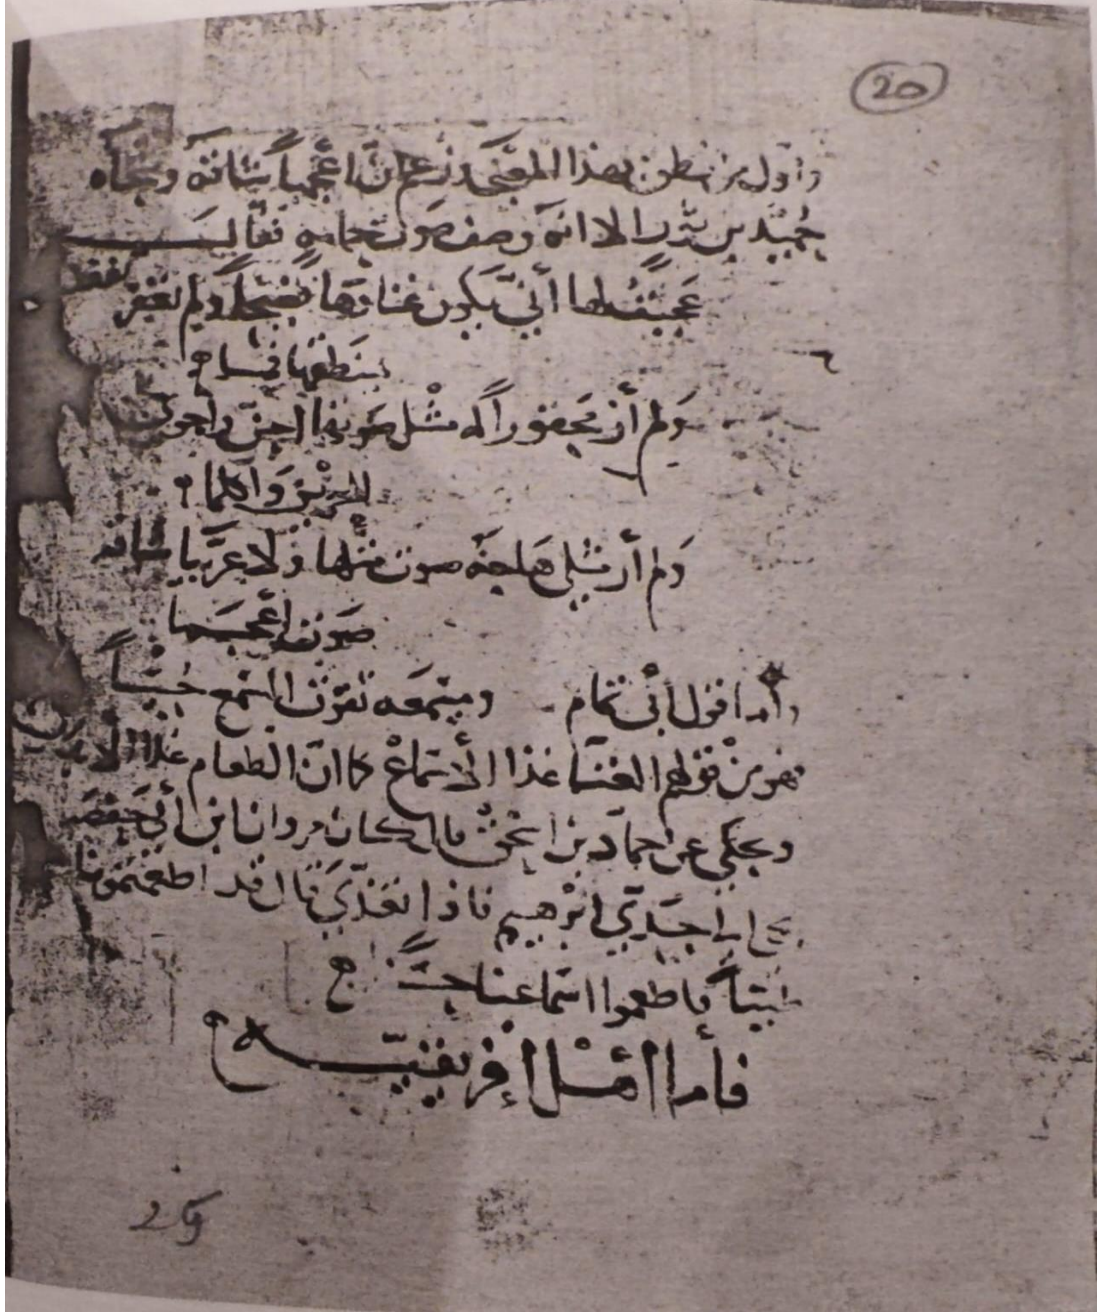 20
وأول من نطق بهذا المعنى وزعم ان اعجمياً شاقه وشجاه
حُميد بن ثور الا انه وصف صوت حمامةٍ فقال
عجبتُ لها أنّى يكون غناؤها فصيحاً ولم تفغر
بمنطقها فما
ولم أر محقوراً له مثل صوتها
ولم أر مثلي هاجه صوت مثلها ولا عربيا شاقه
صوت اعجما
وأما قول أبي تمام ومسمعه تقوت السمع حسناً
فهو من قولهم الغنا غذا الأسماع كما ان الطعام غذا
ويحكى عن حماد بن اسحق قال كان مروان ابن أبي حفصه
جدّي ابرهيم فاذا تغدّى قال قد اطعمتمونا
طيّباً فاطعموا اسماعنا حسناً
فأما اهل إفريقيّه
29